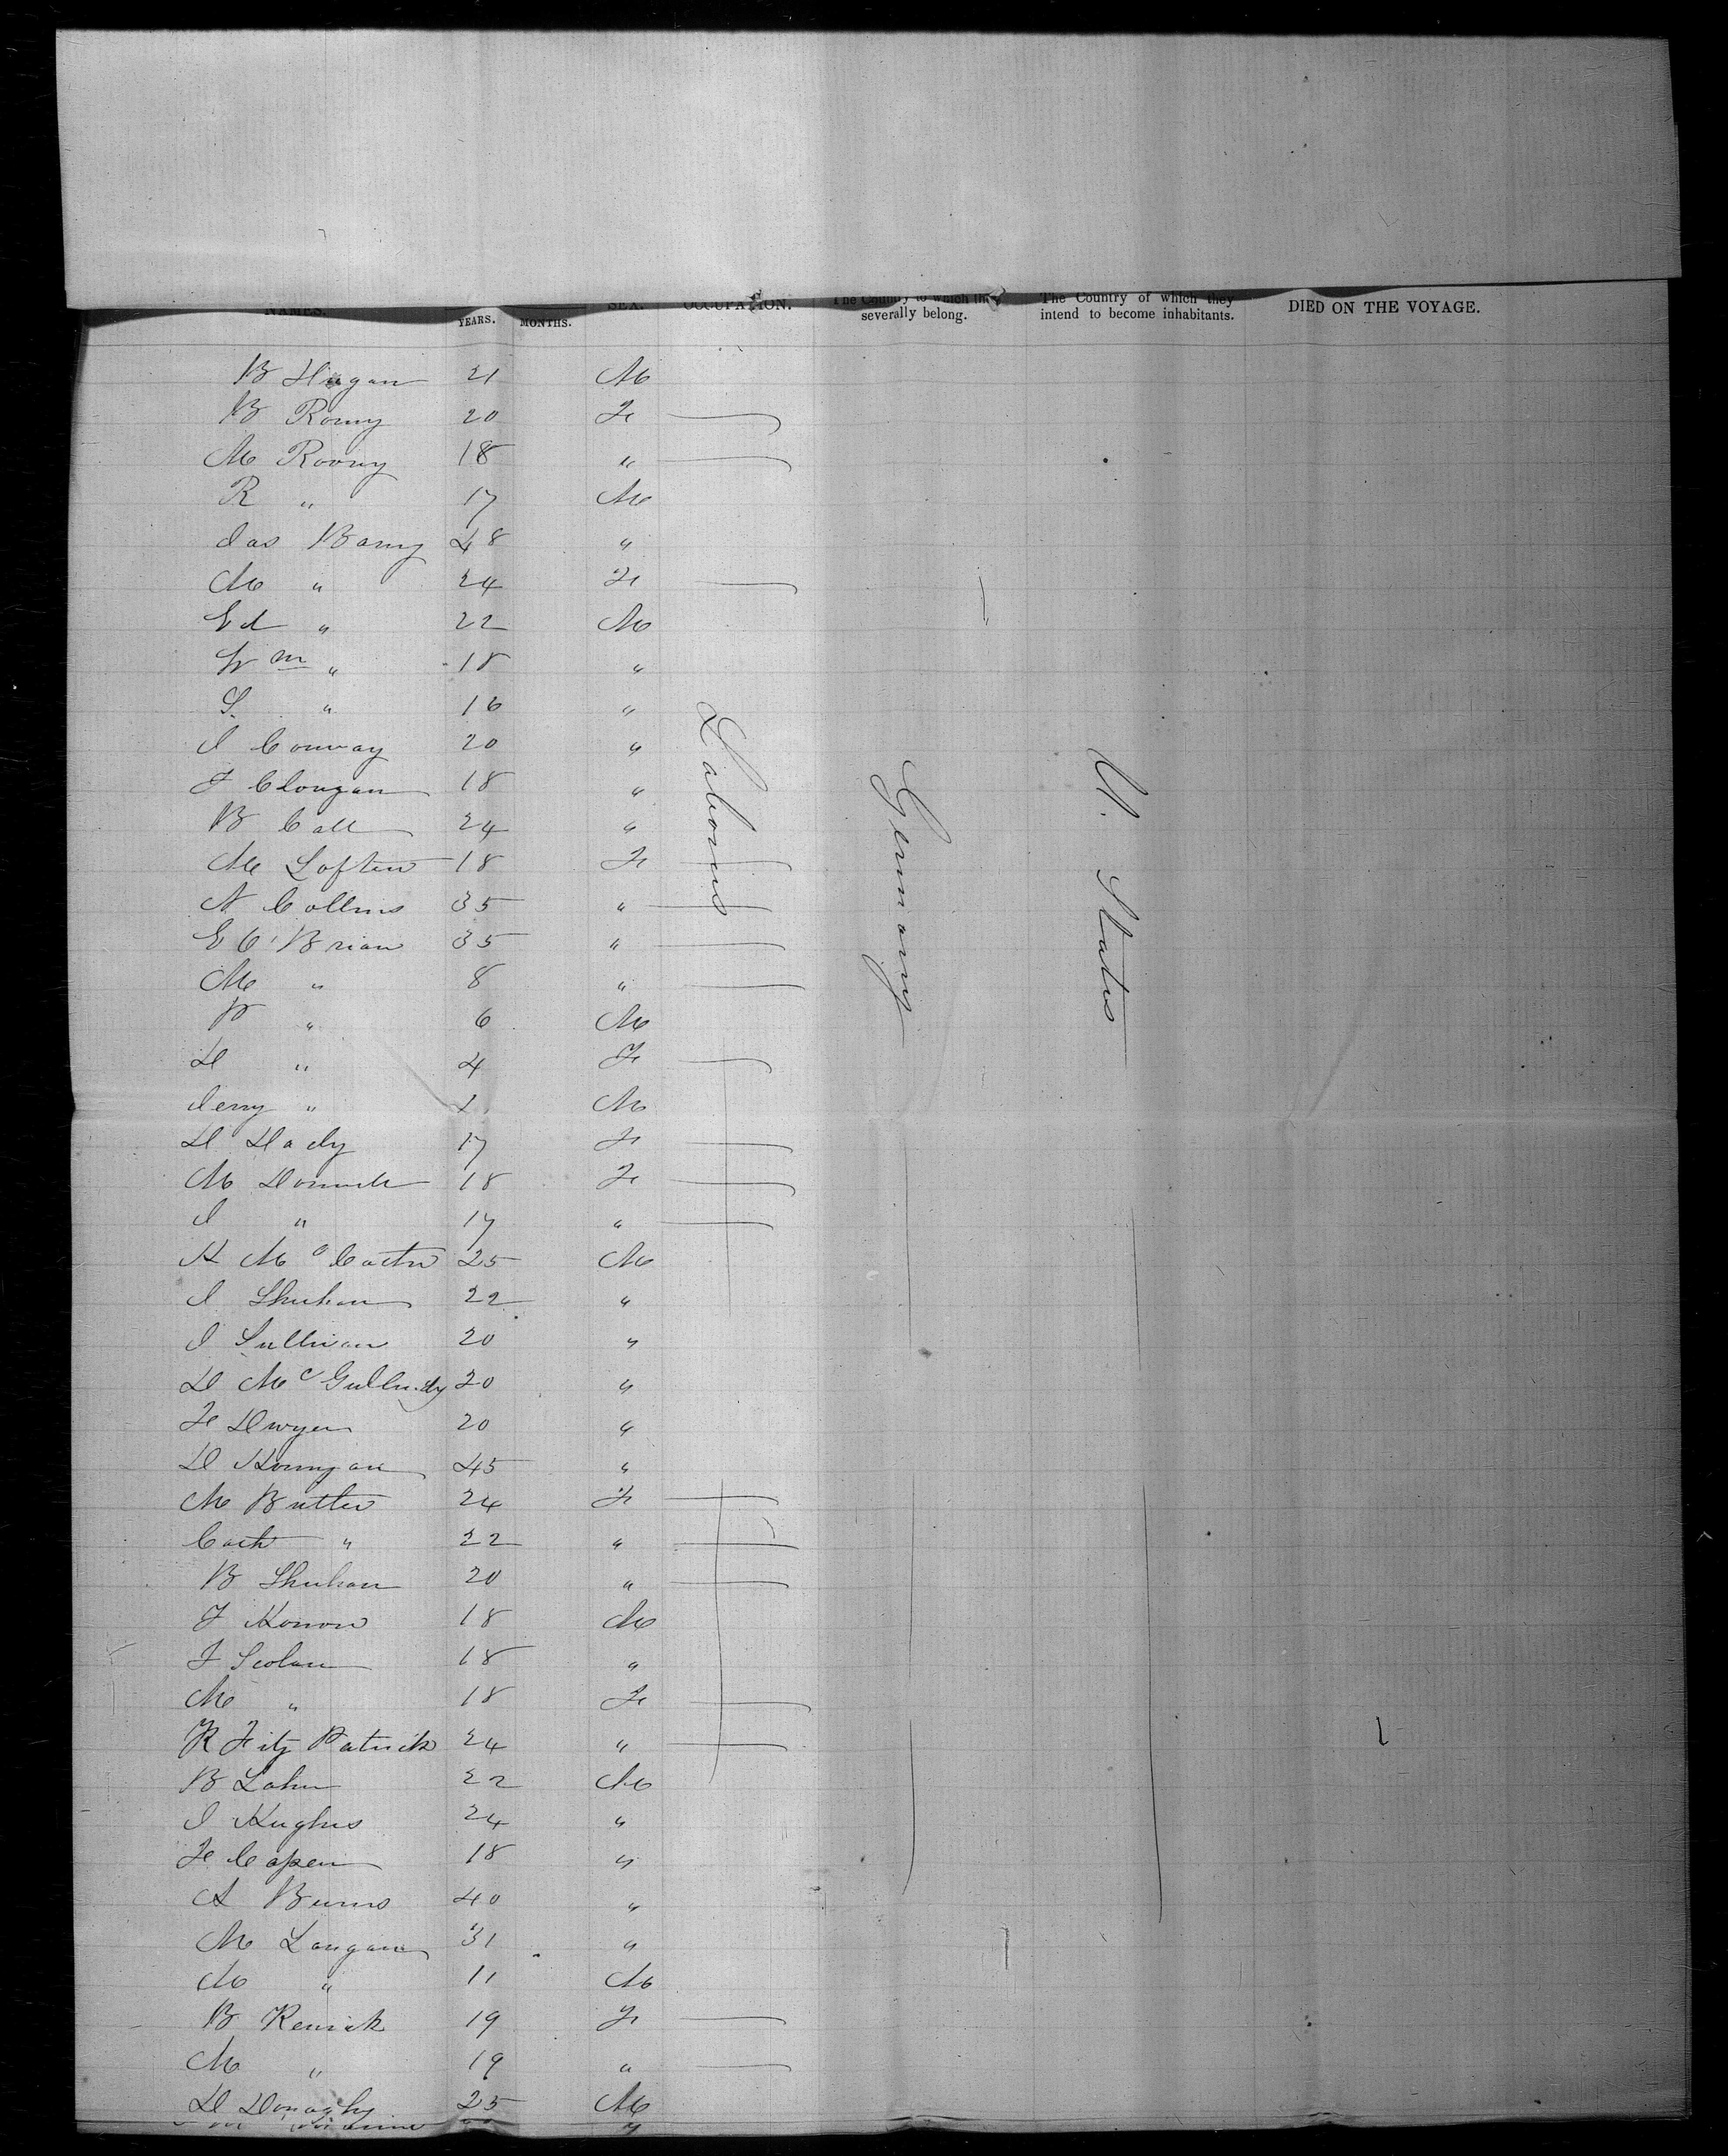 NAMES. YEARS. MONTHS. SEX. OCCUPATION. The Country to which they severally belong. The Country of which they intend to become inhabitants. DIED ON THE VOYAGE.
B Hugan 21 M
B Romy 20 Fe
M Roony 18 "
R " 17 M
Jas Barry 48 "
M " 24 Fe
Ed " 22 M
Wm " 18 "
S. " 16 "
J Conway 20 "
F Clougan 18 "
B Call 24 "
M Loften 18 Fe
N Collins 35 "
E O'Brian 35 "
M " 8 "
P " 6 M
D " 4 Fe
Jerry " 1 M
D Dady 17 Fe
M Donnell 18 Fe
J " 17 "
H Mc 25 M
J Shuhan 22 "
J Sullivan 20 "
D Mc 20 "
F Dwyer 20 "
D 45 "
M Butler 24 Fe
Cath " 22 "
B Shuhan 20 "
F Konon 18 M
F Scolan 18 "
M " 18 Fe
K Fitz Patrick 24 "
B Lahn 22 M
J Hughes 24 "
F Capen 18 "
A Burns 40 "
M Langan 31 "
M " 11 M
B Renick 19 Fe
M " 19 "
D Donaghy 25 M
Laborers
Germany
U. States